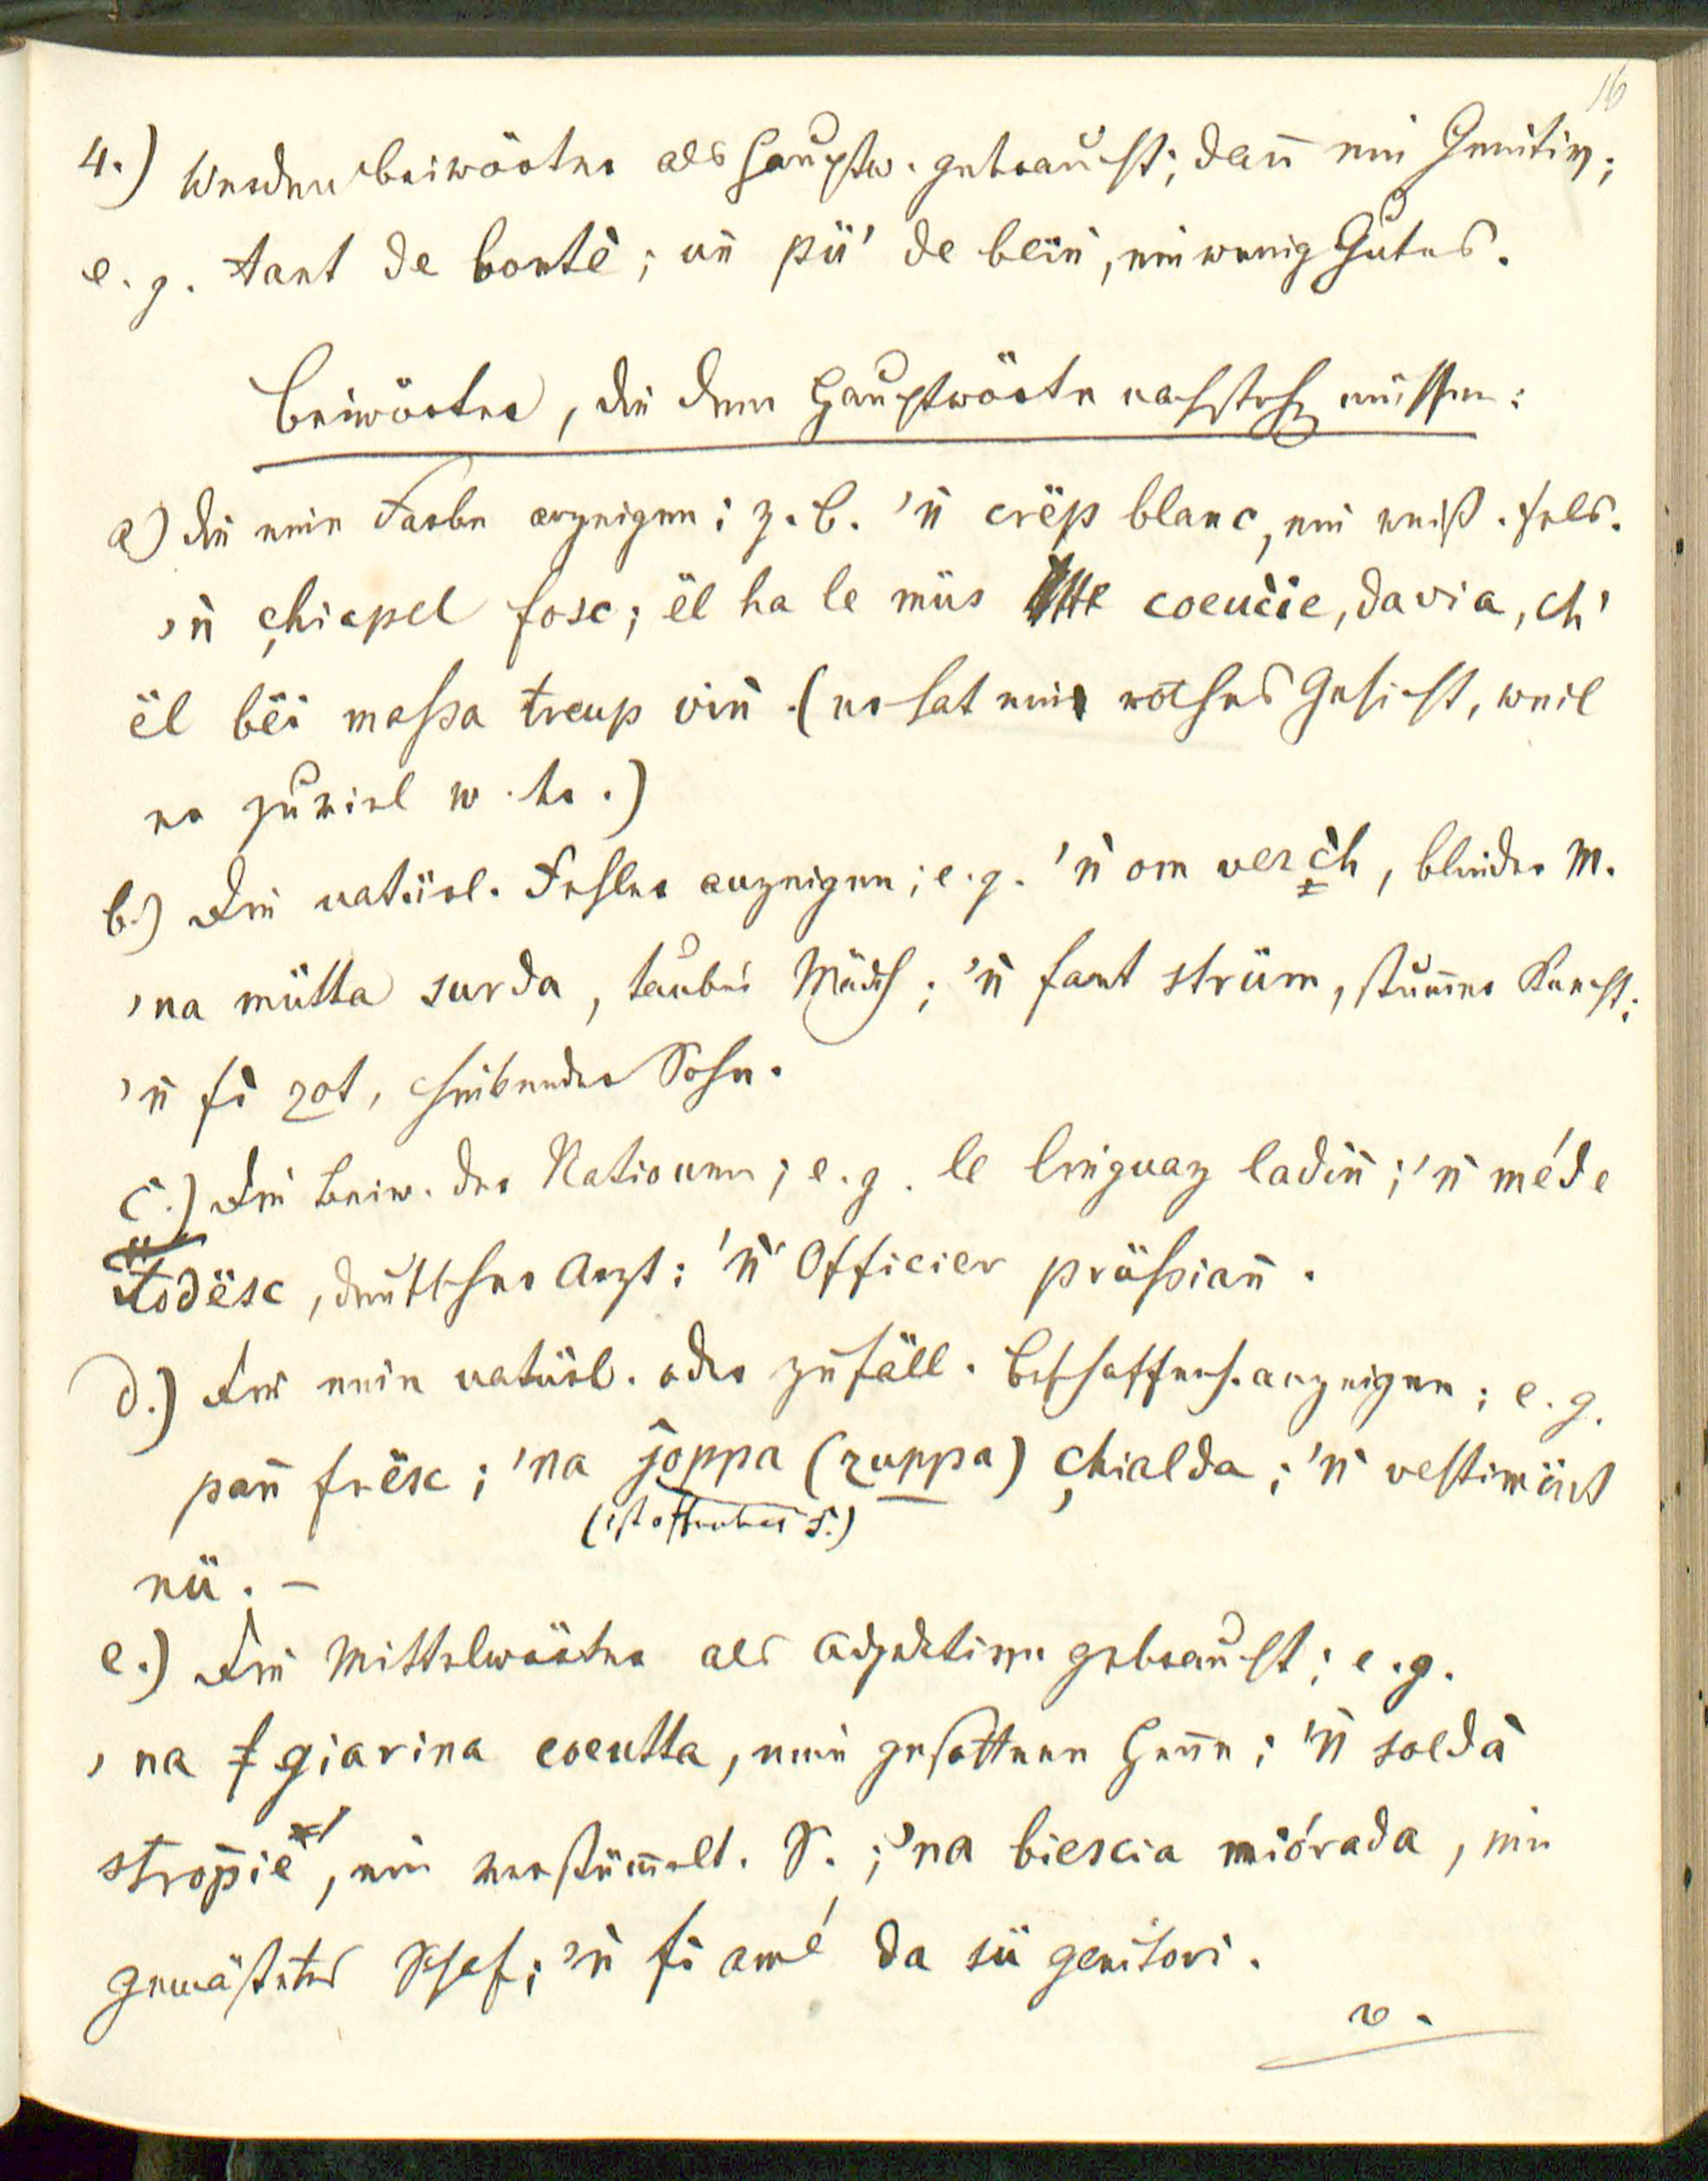 16
4.) Werden Beiwörter als Hauptw. gebraucht; dan̄ ein Genitiv;
e. g. tant de bontè; un̄ pü' de bëin̄, ein wenig Gutes.
Beiwörter, die dem Hauptwörte nachsteh müssen:
a) die eine Farbe anzeigen; z. B. 'n̄ crëp blanc, ein weiß. Fels.
'n̄ çhiapel fosc; ël ha le müs coeucie, davia, ch'
ël bëi massa treup vin̄. (er hat ein rothes Gesicht, weil
er zuviel w. tr.)
b.) Die natürl. Fehler anzeigen; e. g. 'n̄ om verc̀h, blinder M.
'na mütta surda, taubes Mädch; 'n̄ fant strüm, stum̄er Knecht;
'n̄ fi zot, hinkender Sohn.
c.) Die Beiw. der Nationen; e. g. le linguaz ladin̄; 'n̄ méde
todësc, deutscher Arzt; 'n̄ Officier prüssian̄.
d.) Die eine natürl. oder zufäll. Beschaffenh. anzeigen; e. g.
pan̄ frësc; 'na joppa (zuppa) çhialda; 'n̄ vestimënt
(ist offenbar s.)
nü. –
e.) Die Mittelwörter als Adjektive gebraucht; e. g.
'na giarina coeutta, eine gesottene Hen̄e; 'n̄ soldà
stropiè, ein verstüm̄elt. S.; 'na biescia miórada, ein
gemästetes Schaf; 'n̄ fi amé da sü genitori.